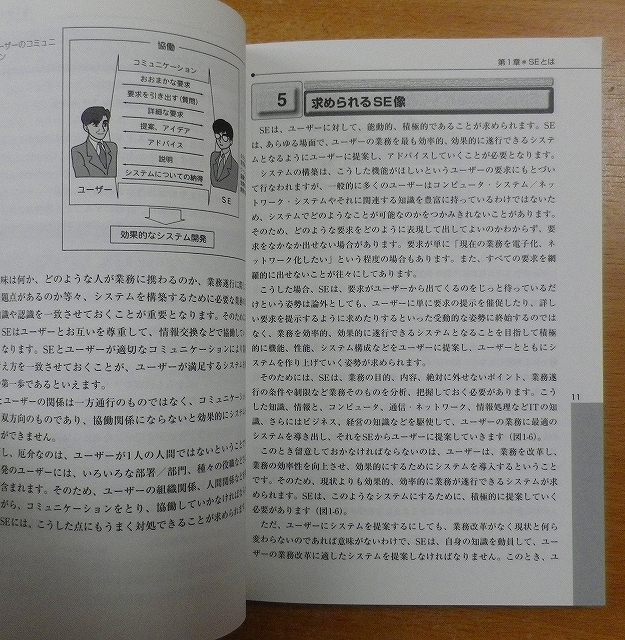 ーザーのコミュニ
ン
協働
コミュニケーション
おおまかな要求
要求を引き出す(質問)
詳細な要求
提案、アイデア
アドバイス
説明
システムについての納得
ユーザー
SE
効果的なシステム開発
味は何か、どのような人が業務に携わるのか、業務遂行に際
題点があるのか等々、システムを構築するために必要な業務
識や認識を一致させておくことが重要となります。そのため
SEはユーザーとお互いを尊重して、情報交換などで協働して
なります。SEとユーザーが適切なコミュニケーションにより
え方を一致させておくことが、ユーザーが満足するシステム
第一歩であるといえます。
ユーザーの関係は一方通行のものではなく、コミュニケーション
双方向のものであり、協働関係にならないと効果的にシステム
ができません。
し、厄介なのは、ユーザーが1人の人間ではないということで
発のユーザーには、いろいろな部署/部門、種々の役職など
含まれます。そのため、ユーザーの組織関係、人間関係など
がら、コミュニケーションをとり、協働していかなければなり
SEには、こうした点にもうまく対処できることが求められます
第1章●SEとは
5 求められるSE像
SEは、ユーザーに対して、能動的、積極的であることが求められます。SE
は、あらゆる場面で、ユーザーの業務を最も効率的、効果的に遂行できるシステ
ムとなるようにユーザーに提案し、アドバイスしていくことが必要となります。
システムの構築は、こうした機能がほしいというユーザーの要求にもとづ
いて行なわれますが、一般的に多くのユーザーはコンピュータ・システム/ネッ
トワーク・システムやそれに関連する知識を豊富に持っているわけではないた
め、システムでどのようなことが可能なのかをつかみきれないことがあります。
そのため、どのような要求をどのように表現して出してよいのかわからず、要
求をなかなか出せない場合があります。要求が単に「現在の業務を電子化、ネ
ットワーク化したい」という程度の場合もあります。また、すべての要求を網
羅的に出せないことが往々にしてあります。
こうした場合、SEは、要求がユーザーから出てくるのをじっと待っているだ
けという姿勢は論外としても、ユーザーに単に要求の提示を催促したり、詳し
い要求を提示するように求めたりするといった受動的な姿勢に終始するのでは
なく、業務を効率的、効果的に遂行できるシステムとなることを目指して積極
的に機能、性能、システム構成などをユーザーに提案し、ユーザーとともにシ
ステムを作り上げていく姿勢が求められます。
そのためには、SEは、業務の目的、内容、絶対に外せないポイント、業務遂
行の条件や制限など業務そのものを分析、把握しておく必要があります。こう
した知識、情報と、コンピュータ、通信・ネットワーク、情報処理などITの知
識、さらにはビジネス、経営の知識などを駆使して、ユーザーの業務に最適の
システムを導き出し、それをSEからユーザーに提案していきます(図1-6)。
このとき留意しておかなければならないのは、ユーザーは、業務を改革し、
業務の効率性を向上させ、効果的にするためにシステムを導入するということ
です。そのため、現状よりも効果的、効率的に業務が遂行できるシステムが求
められます。SEは、このようなシステムにするために、積極的に提案していく
必要があります(図1-6)。
ただ、ユーザーにシステムを提案するにしても、業務改革がなく現状と何ら
変わらないのであれば意味がないわけで、SEは、自身の知識を動員して、ユー
ザーの業務改革に適したシステムを提案しなければなりません。このとき、ユ
11